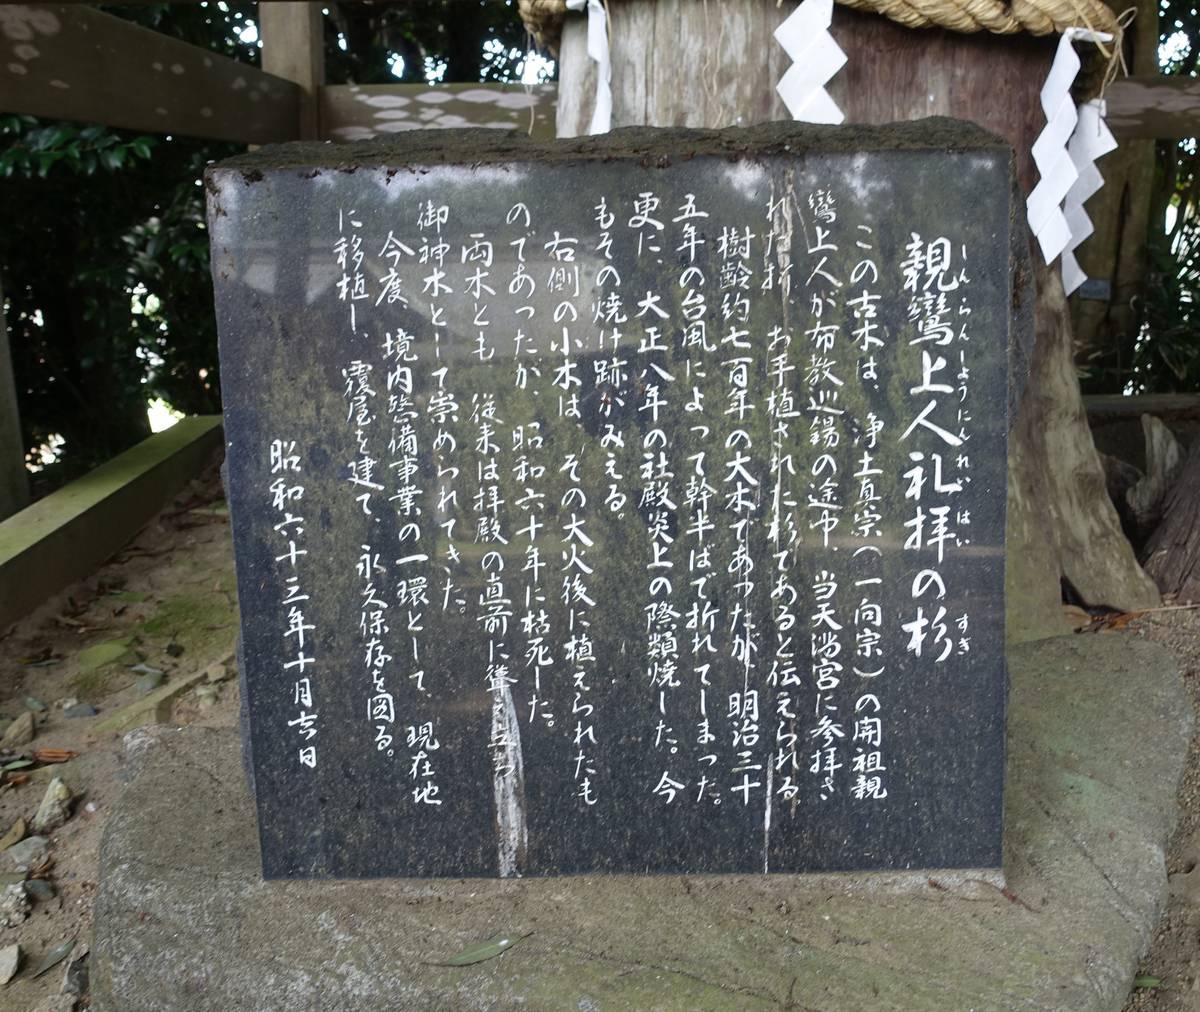 親鸞上人礼拝の杉
しんらんしょうにんれいはい すぎ
この古木は、浄土真宗(一向宗)の開祖親
鸞上人が布教巡錫の途中、当天満宮に参拝さ
れた折、お手植された杉であると伝えられる。
樹齢約七百年の大木であったが、明治三十
五年の台風によって幹半ばで折れてしまった。
更に、大正八年の社殿炎上の際類焼した。今
もその焼け跡がみえる。
右側の小木は、その大火後に植えられたも
のであったが、昭和六十年に枯死した。
両木とも、従来は拝殿の直前に聳え立つ
御神木として崇められてきた。
今度、境内整備事業の一環として、現在地
に移植し、覆屋を建て、永久保存を図る。
昭和六十三年十月吉日